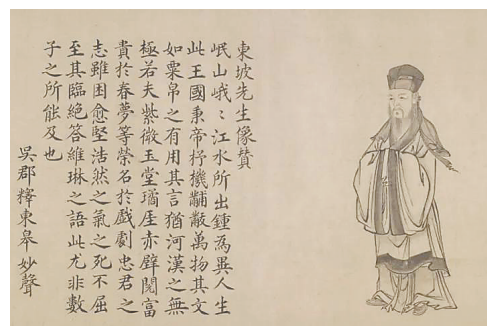 東坡先生像賛
岷山峨〻江水所出鍾為異人生
此王國秉帝杼機黼黻萬物其文
如粟帛之有用其言猶河漢之無
極若夫紫微玉堂璚厓赤壁閱富
貴於春夢等榮名於戲劇忠君之
志雖困愈堅浩然之氣之死不屈
至其臨絶答維琳之語此尤非數
子之所能及也
吳郡釋東皋妙聲